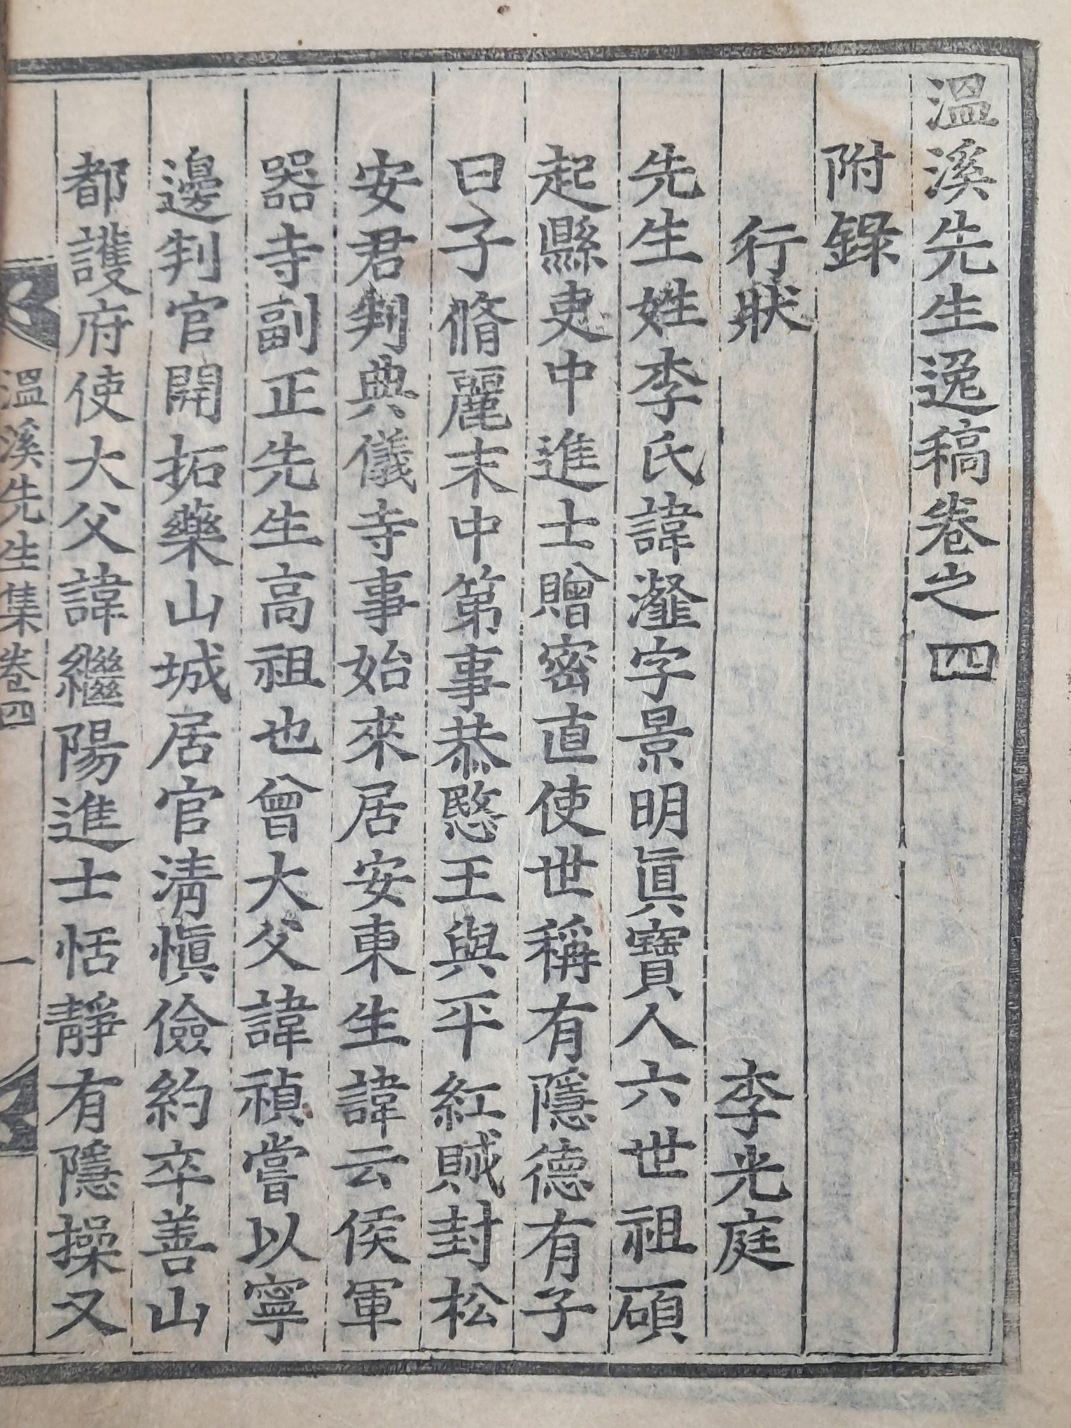 溫溪先生逸稿卷之四
附錄
行狀 李光庭
先生姓李氏諱瀣字景明眞寶人六世祖碩
起縣吏中進士贈密直使世稱有隱德有子
曰子脩麗末中第事恭愍王與平紅賊封松
安君判典儀寺事始來居安東生諱云侯軍
器寺副正先生高祖也曾大父諱禎嘗以寧
邊判官開拓藥山城居官淸愼儉約卒善山
都護府使大父諱繼陽進士恬靜有隱操又
溫溪先生集卷四 一